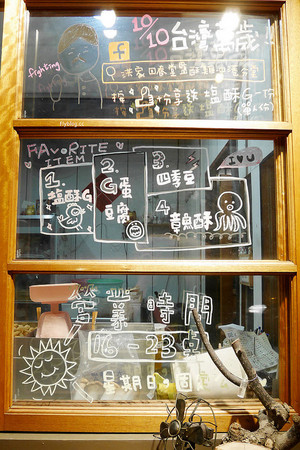 10/10 台灣萬歲!!
fighting
f
洪家
按 分享 送 塩酥G一份
Flyblog.cc
FAVORITE
ITEM
I V U
1. 塩酥G
G蛋豆腐
3. 四季豆
4. 魷魚酥
營業時間
16-23點
星期日。固